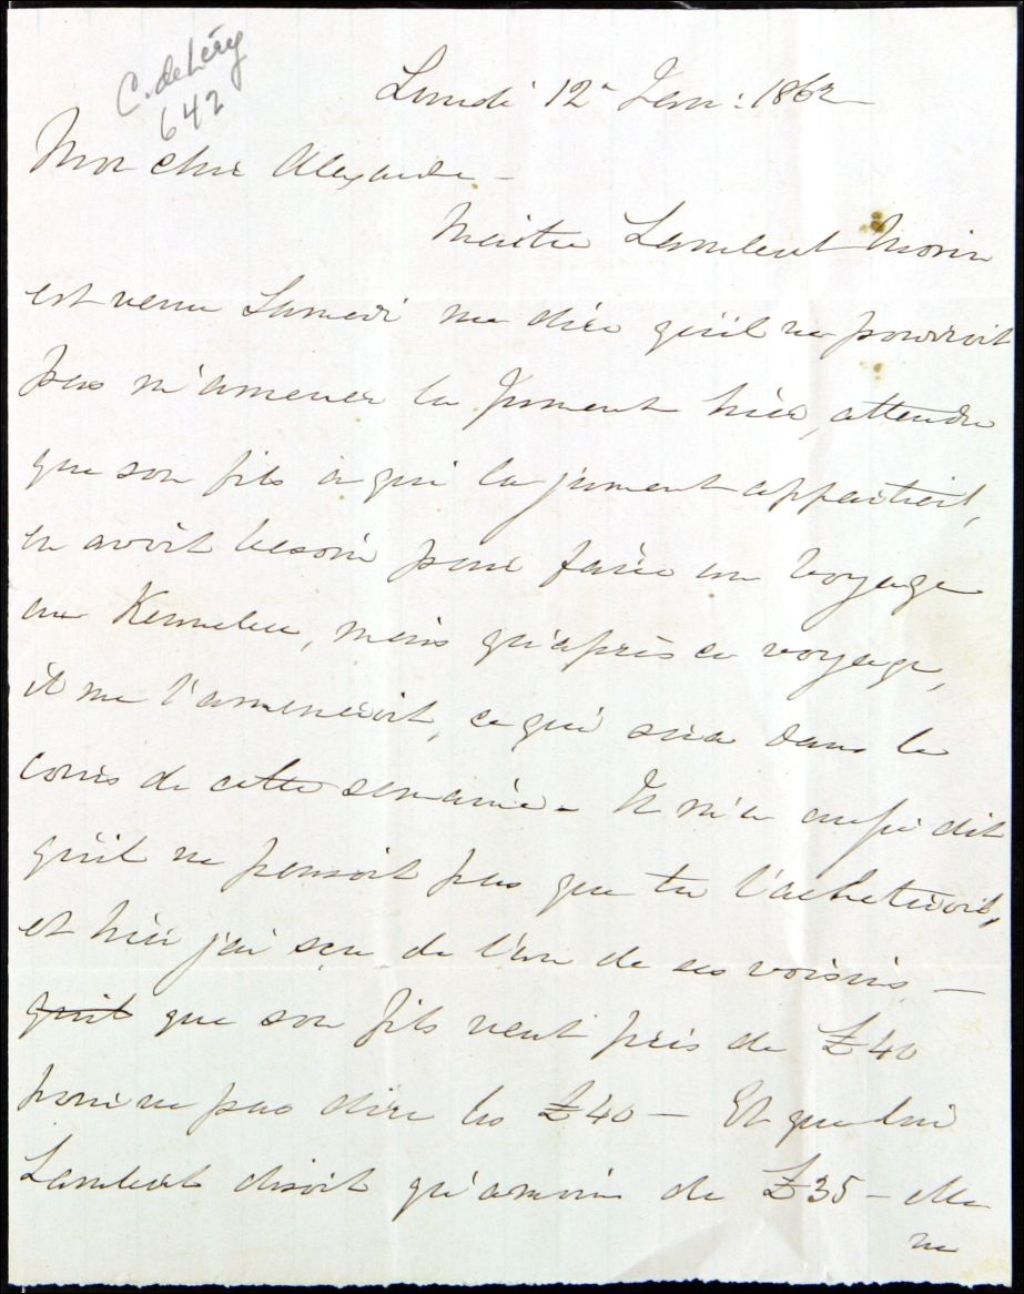 C. deLéry
642
Lundi 12 Janv: 1862
Mon cher Alexandre -
Maitre Lambert Morin
est venu Samedi me dire qu'il ne pourroit
pas m'amener la Jument hier, attendu
que son fils à qui la jument appartient,
en avoit besoin pour faire un voyage
au Kennebec, mais qu'après ce voyage,
il me l'ameneroit, ce qui sera dans le
cours de cette semaine. Il m'a aussi dit
qu'il ne pensoit pas que tu l'acheterois,
et hier j'ai sçu de l'un de ses voisins -
qu'il que son fils veut près de £40
pour ne pas dire les £40 - Et que lui
Lambert disoit qu'a moins de £35 - elle
ne